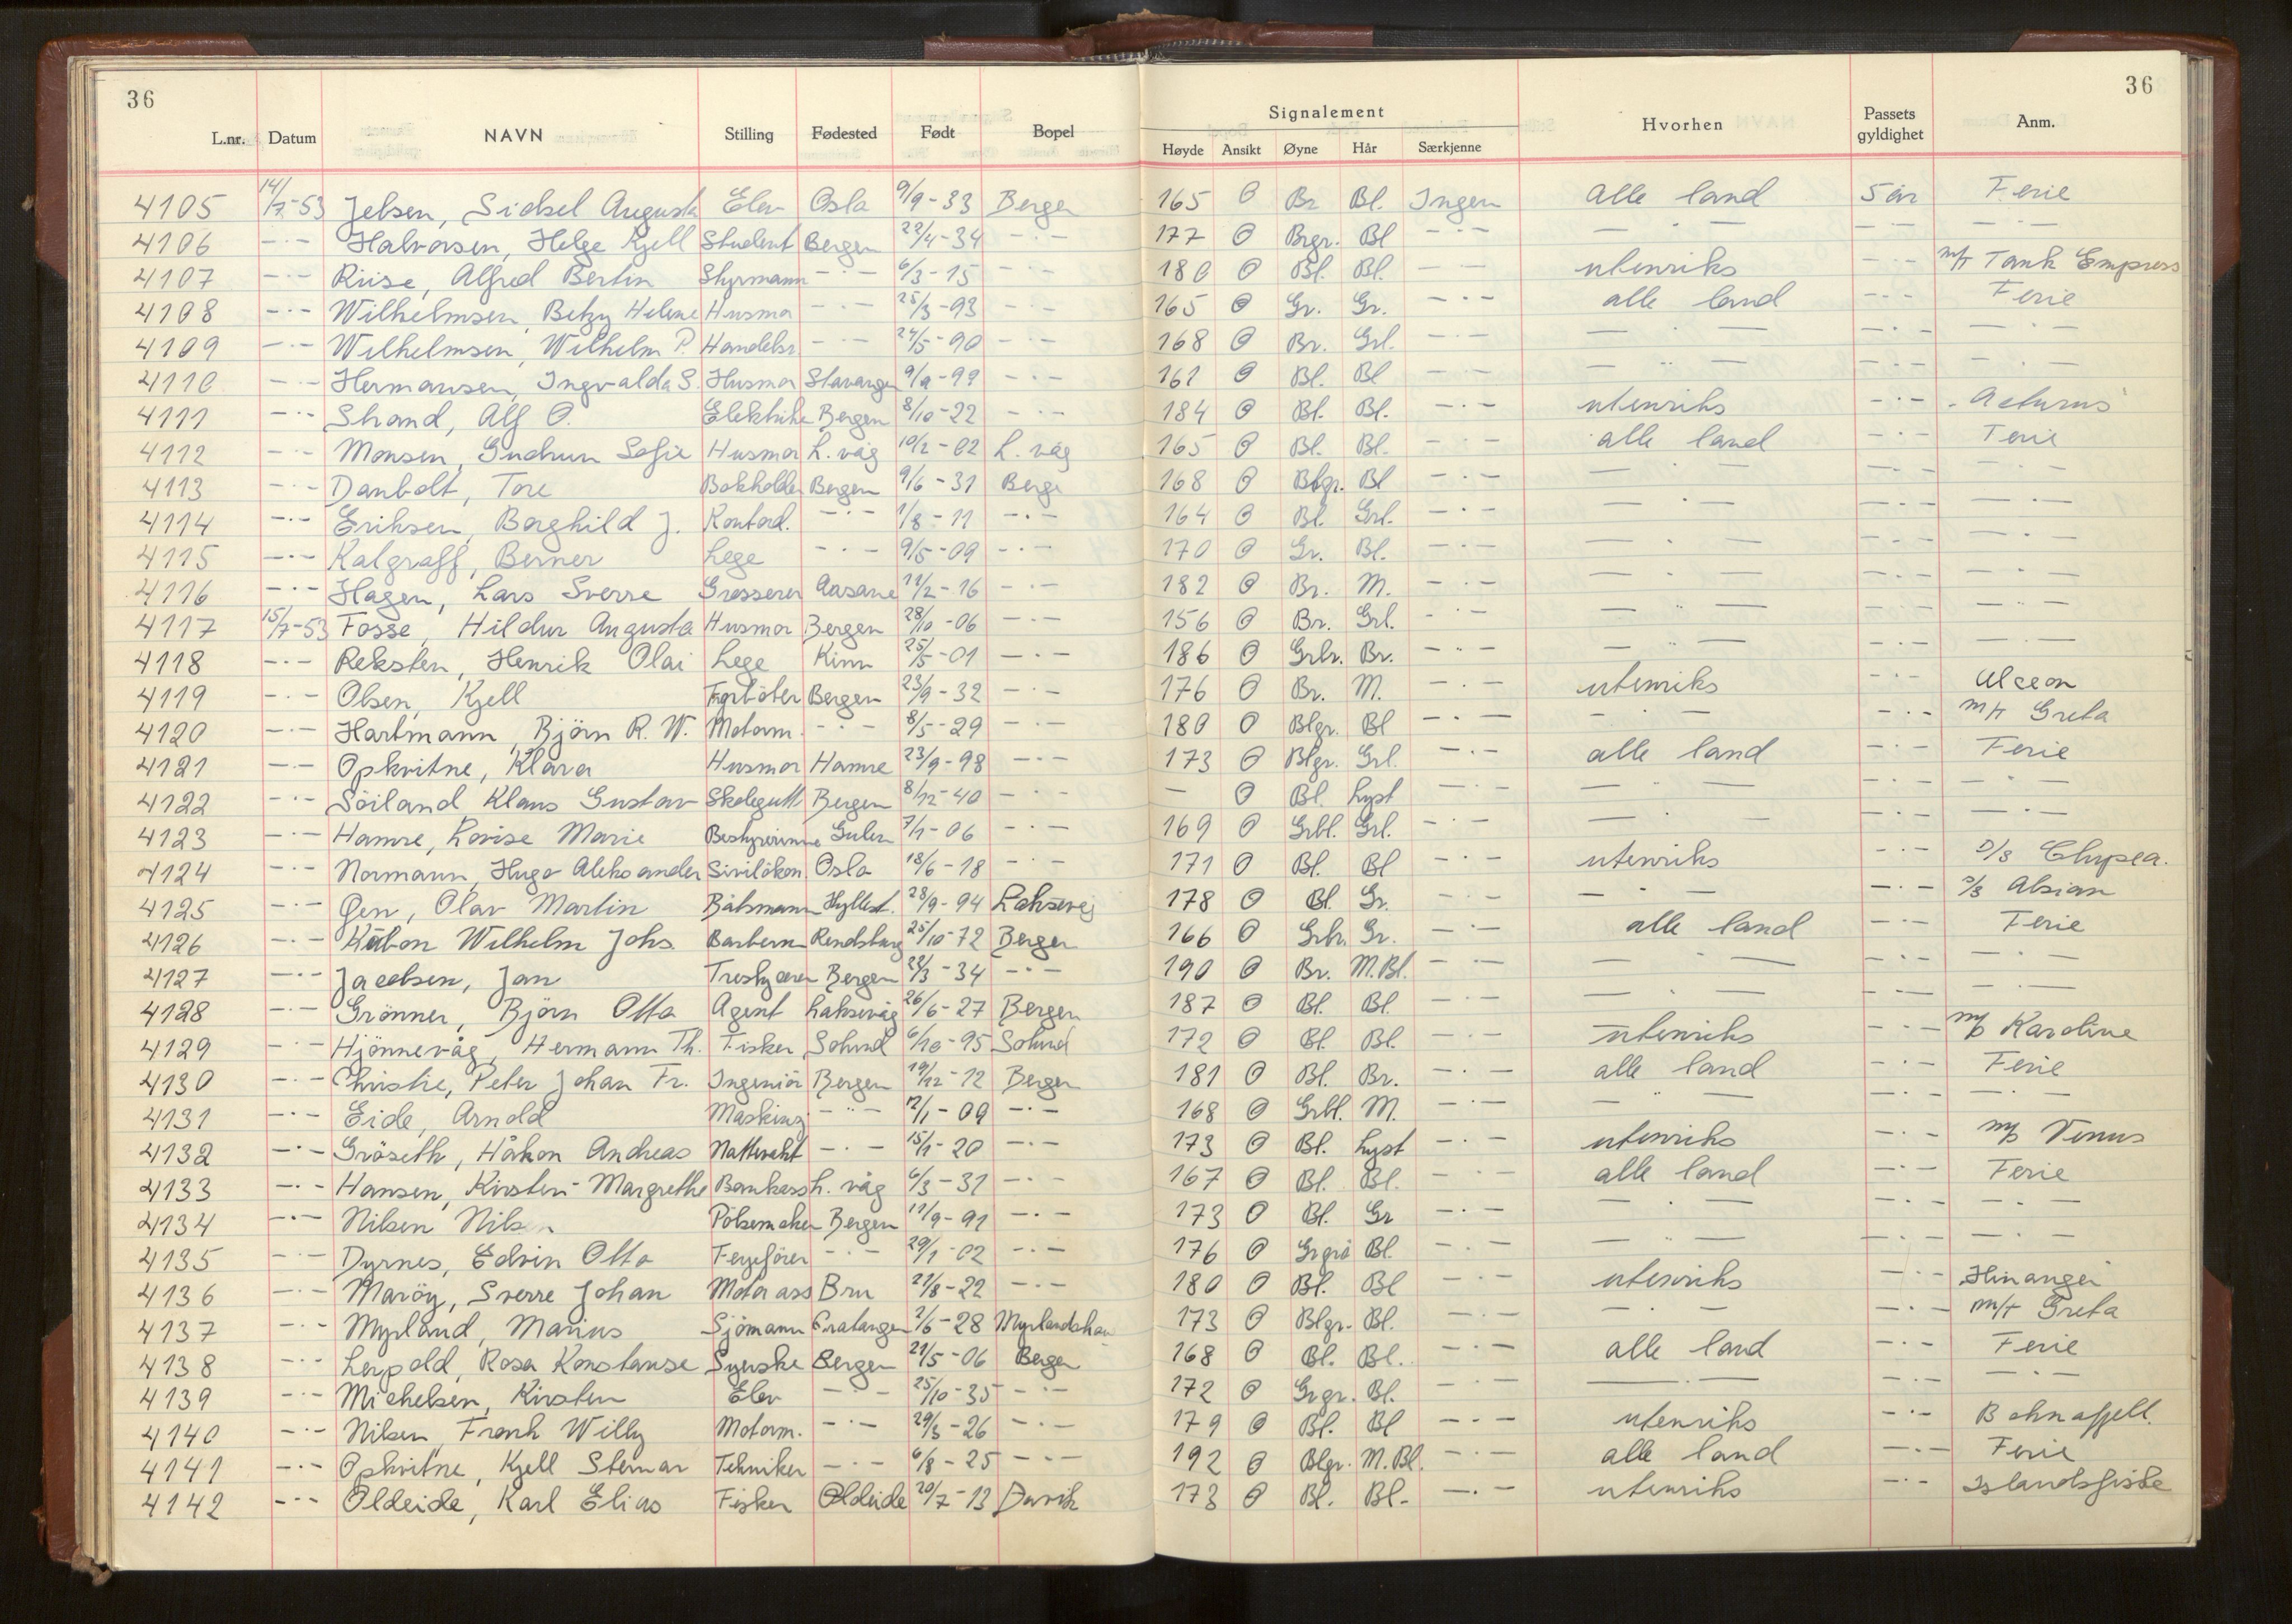 36
36
Signalement
L.nr. Datum NAVN Stilling Fødested Født Bopel Høyde Ansikt Øyne Hår Særkjenne Hvorhen Passets gyldighet Anm.
4105 14/7-53 Jebsen, Sidsel Augusta Elev Oslo 9/9-33 Bergen 165 O Br Bl. Ingen alle land 5 år Ferie
4106 -·- Halvorsen, Helge Kjell Student Bergen 22/4-34 -·- 177 O Brgr. Bl -·- -·- -·- -·-
4107 -·- Riise, Alfred Bertin Styrmann -·- 6/3-15 -·- 180 O Bl. Bl. -·- utenriks -·- m/t Tank Empress
4108 -·- Wilhelmsen, Betzy Helene Husmor -·- 25/3-93 -·- 165 O Gr. Gr. -·- alle land -·- Ferie
4109 -·- Wilhelmsen, Wilhelm P. Handelsr -·- 24/5-90 -·- 168 O Br. Grl. -·- -·- -·- -·-
4110 -·- Hermansen, Ingvalda S. Husmor Stavanger 9/9-99 -·- 161 O Bl. Bl -·- -·- -·-
4111 -·- Strand, Alf O. Elektrike Bergen 8/10-22 -·- 184 O Bl. Bl. -·- utenriks -·- "Acturus"
4112 -·- Monsen, Gudrun Sofie Husmor L. våg 10/2-02 L. våg 165 O Bl. Bl. -·- alle land -·- Ferie
4113 -·- Danbolt, Tore Bokholder Bergen 9/6-31 Berge 168 O Blgr. Bl -·- -·- -·- -·-
4114 -·- Eriksen, Borghild J. Kontord. -·- 1/8-11 -·- 164 O Bl. Grl. -·- -·- -·- -·-
4115 -·- Kalgraff, Berner Lege -·- 9/5-09 -·- 170 O Gr. Bl. -·- -·- -·- -·-
4116 -·- Hagen, Lars Sverre Grosserer Aasane 11/2-16 -·- 182 O Br. M. -·- -·- -·- -·-
4117 15/7-53 Fosse, Hildur Augusta Husmor Bergen 28/10-06 -·- 156 O Br. Grl. -·- -·- -·- -·-
4118 -·- Reksten, Henrik Olai Lege Kinn 25/5-01 -·- 186 O Grbr. Br. -·- -·- -·- -·-
4119 -·- Olsen, Kjell Fyrböter Bergen 23/9-32 -·- 176 O Br. M. -·- utenriks -·- Alceon
4120 -·- Hartmann, Björn R. W. Motorm. -·- 8/5-29 -·- 180 O Blgr. Bl -·- -·- -·- m/t Greta
4121 -·- Opkvitne, Klara Husmor Hamre 23/9-98 -·- 173 O Blgr. Grl. -·- alle land -·- Ferie
4122 -·- Söiland Klaus Gustav Skolegutt Bergen 8/12-40 -·- — O Bl. Lyst -·- -·- -·- -·-
4123 -·- Hamre, Lovise Marie Bestyrerinne Gulen 7/1-06 -·- 169 O Grbl. Grl. -·- -·- -·-
4124 -·- Normann, Hugo Aleksander Sivilökon. Oslo 18/6-18 -·- 171 O Bl. Bl -·- utenriks -·- D/S Clypea.
4125 -·- Öen, Olav Martin Båtsmann Hyllest. 28/9-94 Laksevåg 178 O Bl Gr. -·- -·- -·- S/S Alsian
4126 -·- Kübon Wilhelm Johs. Barberm Rendsburg 25/10-72 Bergen 166 O Grbr. Gr. -·- alle land -·- Ferie
4127 -·- Jacobsen, Jan Treskjærer Bergen 22/3-34 -·- 190 O Br. M.Bl. -·- -·- -·- -·-
4128 -·- Grönner, Björn Otto Agent Laksevåg 26/6-27 Bergen 187 O Bl. Bl. -·- -·- -·- -·-
4129 -·- Hjönnevåg, Hermann Th. Fisker Solund 6/10-95 Solund 172 O Bl Bl. -·- utenriks -·- m/s Karoline
4130 -·- Christie, Peter Johan Fr. Ingeniör Bergen 19/12-12 Bergen 181 O Bl. Br. -·- alle land -·- Ferie
4131 -·- Eide, Arnold Masking -·- 12/1-09 -·- 168 O Grbl. M. -·- -·- -·- -·-
4132 -·- Gröseth, Håkon Andreas Nattevakt -·- 15/1-20 -·- 173 O Bl. Lyst -·- utenriks -·- m/s Venus
4133 -·- Hansen, Kirsten Margrethe Bankass L. våg 6/3-31 -·- 167 O Bl. Bl. -·- alle land -·- Ferie
4134 -·- Nilsen Nils Pölsemaker Bergen 11/9-91 -·- 173 O Bl. Gr -·- -·- -·- -·-
4135 -·- Dyrnes, Edvin Otto Fergeförer -·- 29/1-02 -·- 176 O Grgrö Bl. -·- -·- -·- -·-
4136 -·- Maröy, Sverre Johan Motorass Bru 21/8-22 -·- 180 O Bl. Bl -·- utenriks -·- Hinanger
4137 -·- Myrland, Marius Sjömann Gratangen 2/6-28 Myrlandshau 173 O Blgr. Bl. -·- -·- -·- m/t Greta
4138 -·- Leypold, Rosa Konstanse Syerske Bergen 21/5-06 Bergen 168 O Bl. Bl. -·- alle land -·- Ferie
4139 -·- Michelsen, Kirsten Elev -·- 25/10-35 -·- 172 O Grgr. Bl. -·- -·- -·- -·-
4140 -·- Nilsen, Frank Willy Motorm. -·- 29/3-26 -·- 179 O Bl. Bl -·- utenriks -·-
4141 -·- Opkvitne, Kjell Steinar Tekniker -·- 6/8-25 -·- 192 O Blgr. M.Bl. -·- alle land -·- Ferie
4142 -·- Oldeide, Karl Elias Fisker Oldeide 20/7-13 Davik 173 O Bl. Bl. -·- utenriks -·- Islandsfiske